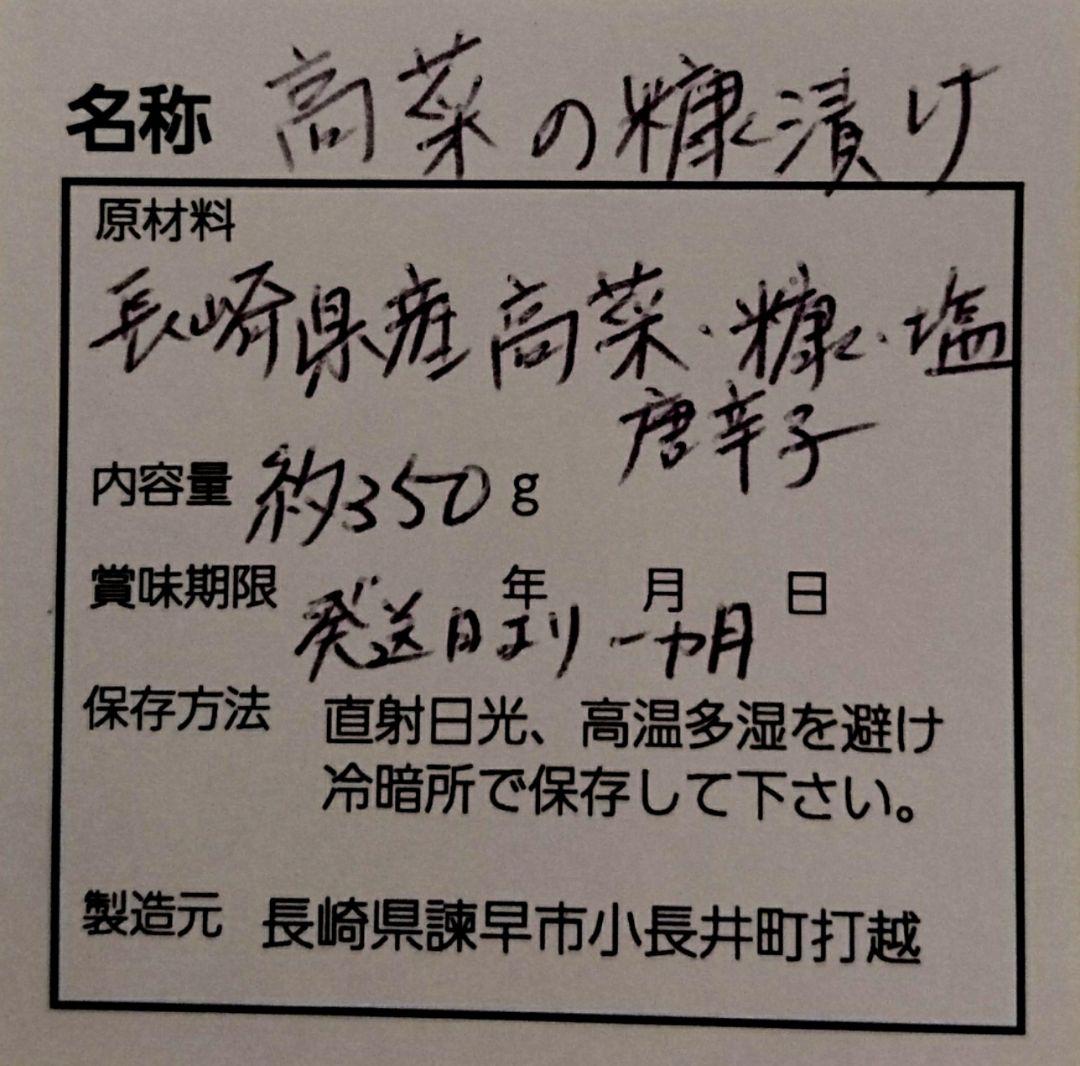 名称 高菜の糠漬け
原材料
長崎県産高菜・糠・塩
唐辛子
内容量 約350g
賞味期限 年 月 日
発送日より一カ月
保存方法 直射日光、高温多湿を避け
冷暗所で保存して下さい。
製造元 長崎県諫早市小長井町打越